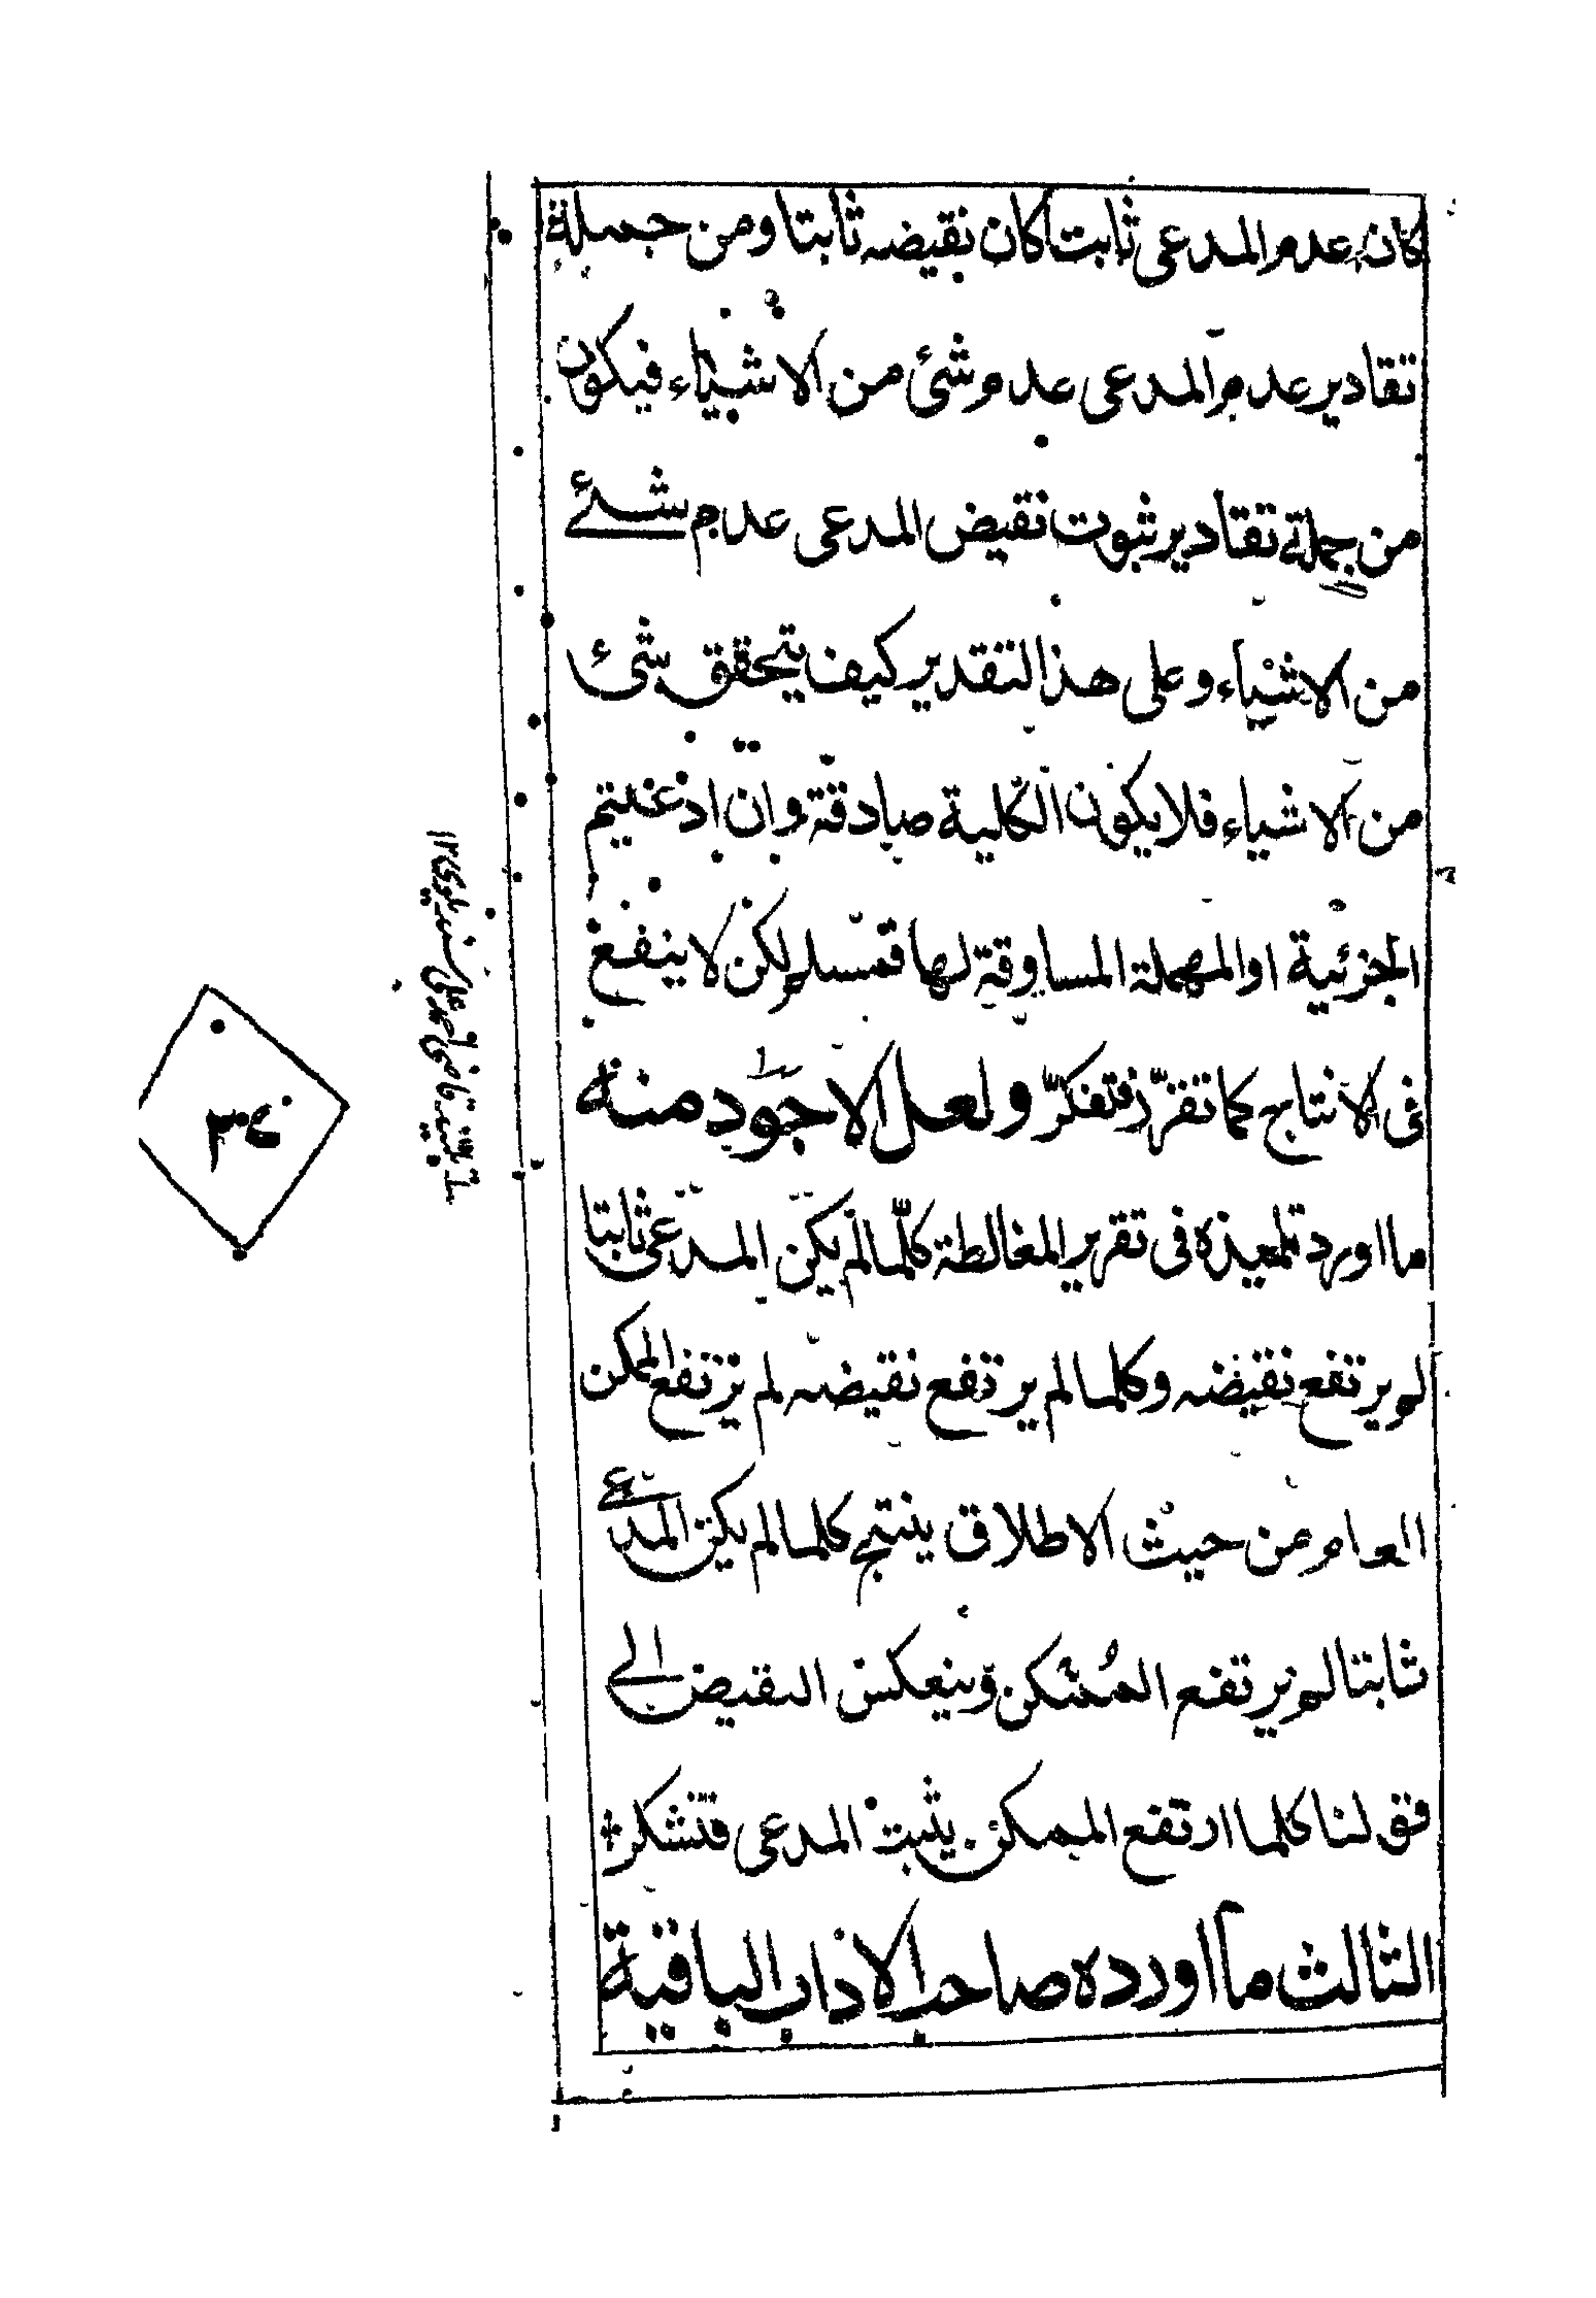 كان عدم المدعى ثابتا كان نقيضه ثابتا ومن جملة
تقادير عدم المدعى عدم شئ من الاشياء فيكون
من جملة تقادير ثبوت نقيض المدعى عدم شئے
من الاشياء وعلى هذا التقدير كيف يتحقق شئ
من الاشياء فلا يكون الكلية صادقة وان ادعيتم
الجزئية او المهملة المساوقة لها فمسلم لكن لا ينفع
فى الانتاج كما تقرر فتفكر ولعل الاجود منه
ما اورد تلميذه فى تقرير المغالطة كلّما لم يكن المدعى ثابتا
لم يرتفع نقيضه وكلما لم يرتفع نقيضه لم يرتفع الممكن
العام من حيث الاطلاق ينتج كلما لم يكن المدعے
ثابتا لم يرتفع الممكن وينعكس النقيض الے
قولنا كلما ارتفع الممكن يثبت المدعى فتشكر
الثالث ما اورده صاحب الاداب الباقية
قاضى احمد على سنديلوى ١٢